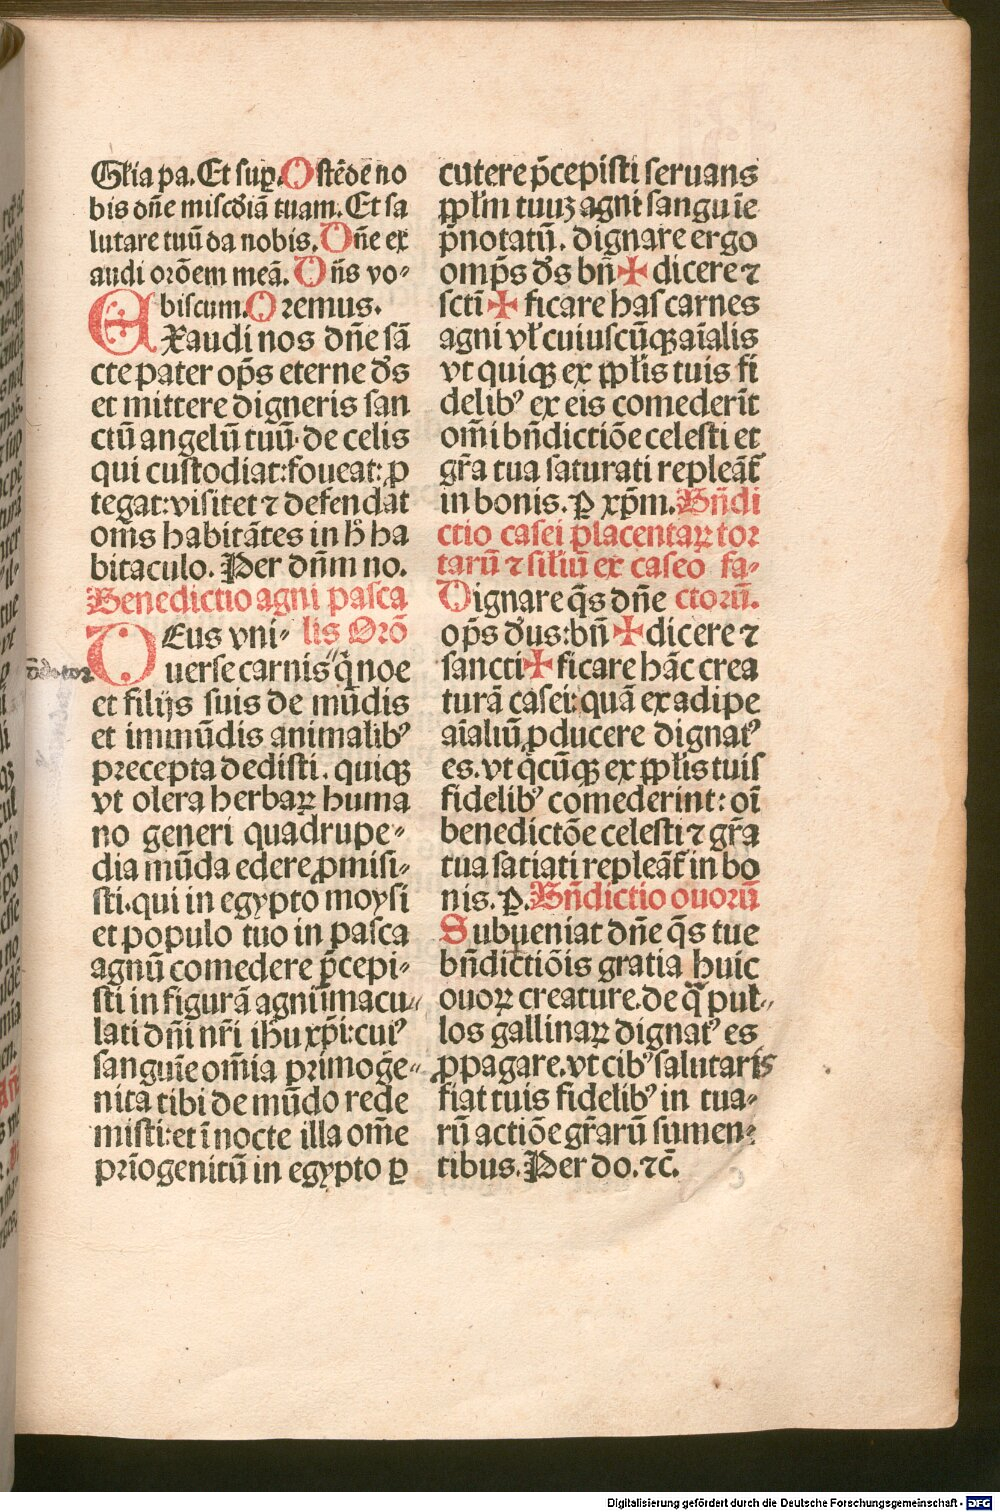 Głia pa. Et sup̱. Ostēdē no
bis dn̄e misc̄diā tuam. Et sa
lutare tuū da nobis. Dn̄e ex
audi orōem meā. Dn̄s vo⸗
biscum. Oremus.
EXaudi nos dn̄e sā
cte pater op̄s eterne d̄s
et mittere digneris san
ctū angelū tuū· de celis
qui custodiat: foueat: ꝓ
tegat: visitet ⁊ defendat
om̄s habitātes in h̄ ha
bitaculo. Per dn̄m no.
Benedictio agni pasca
lis Orō
DEus vni⸗
uerse carnis q̄ noe
et filijs suis de mūdis
et immūdis animalibꝰ
precepta dedisti. quiqꝫ
vt olera herbaꝝ huma
no generi quadrupe⸗
dia mūda edere ꝓmisi⸗
sti. qui in egypto moysi
et populo tuo in pasca
agnū comedere p̄cepi⸗
sti in figurā agni īmacu⸗
lati dn̄i nr̄i ih̄u xp̄i: cuiꝰ
sanguīe om̄ia primoge⸗
nita tibi de mūdo rede
misti: et ī nocte illa om̄e
prīogenitū in egypto ꝑ
cutere p̄cepisti seruans
ꝓp̄lm tuuꝫ agni sanguīe
p̄notatū. dignare ergo
omp̄s d̄s bn̄ ✠ dicere ⁊
sctī ✠ ficare has carnes
agni vł cuiuscūqꝫ aīalis
vt quiqꝫ ex ꝓp̄lis tuis fi
delibꝰ ex eis comederīt
om̄i bn̄dictiōe celesti et
gr̄a tua saturati repleāt̄
in bonis. P xp̄m. Bn̄di
ctio casei placentaꝝ tor
tarū ⁊ siliū ex caseo fa⸗
ctorū.
Dignare q̄s dn̄e
op̄s d̄us: bn̄ ✠ dicere ⁊
sancti ✠ ficare hāc crea
turā casei: quā ex adipe
aīaliū ꝓducere dignatꝰ
es. vt q̄cūqꝫ ex ꝓp̄lis tuis
fidelibꝰ comederint: oī
benedictōe celesti ⁊ gr̄a
tua satiati repleāt̄ in bo
nis. P. Bn̄dictio ouorū
Subueniat dn̄e q̄s tue
bn̄dictiōis gratia huic
ouoꝝ creature. de q̄ pul⸗
los gallinaꝝ dignatꝰ es
ꝓpagare. vt cibꝰ salutaris
fiat tuis fidelibꝰ in tua⸗
rū actiōe gr̄arū sumen⸗
tibus. Per do. ⁊c̄.
Digitalisierung gefördert durch die Deutsche Forschungsgemeinschaft - DFG